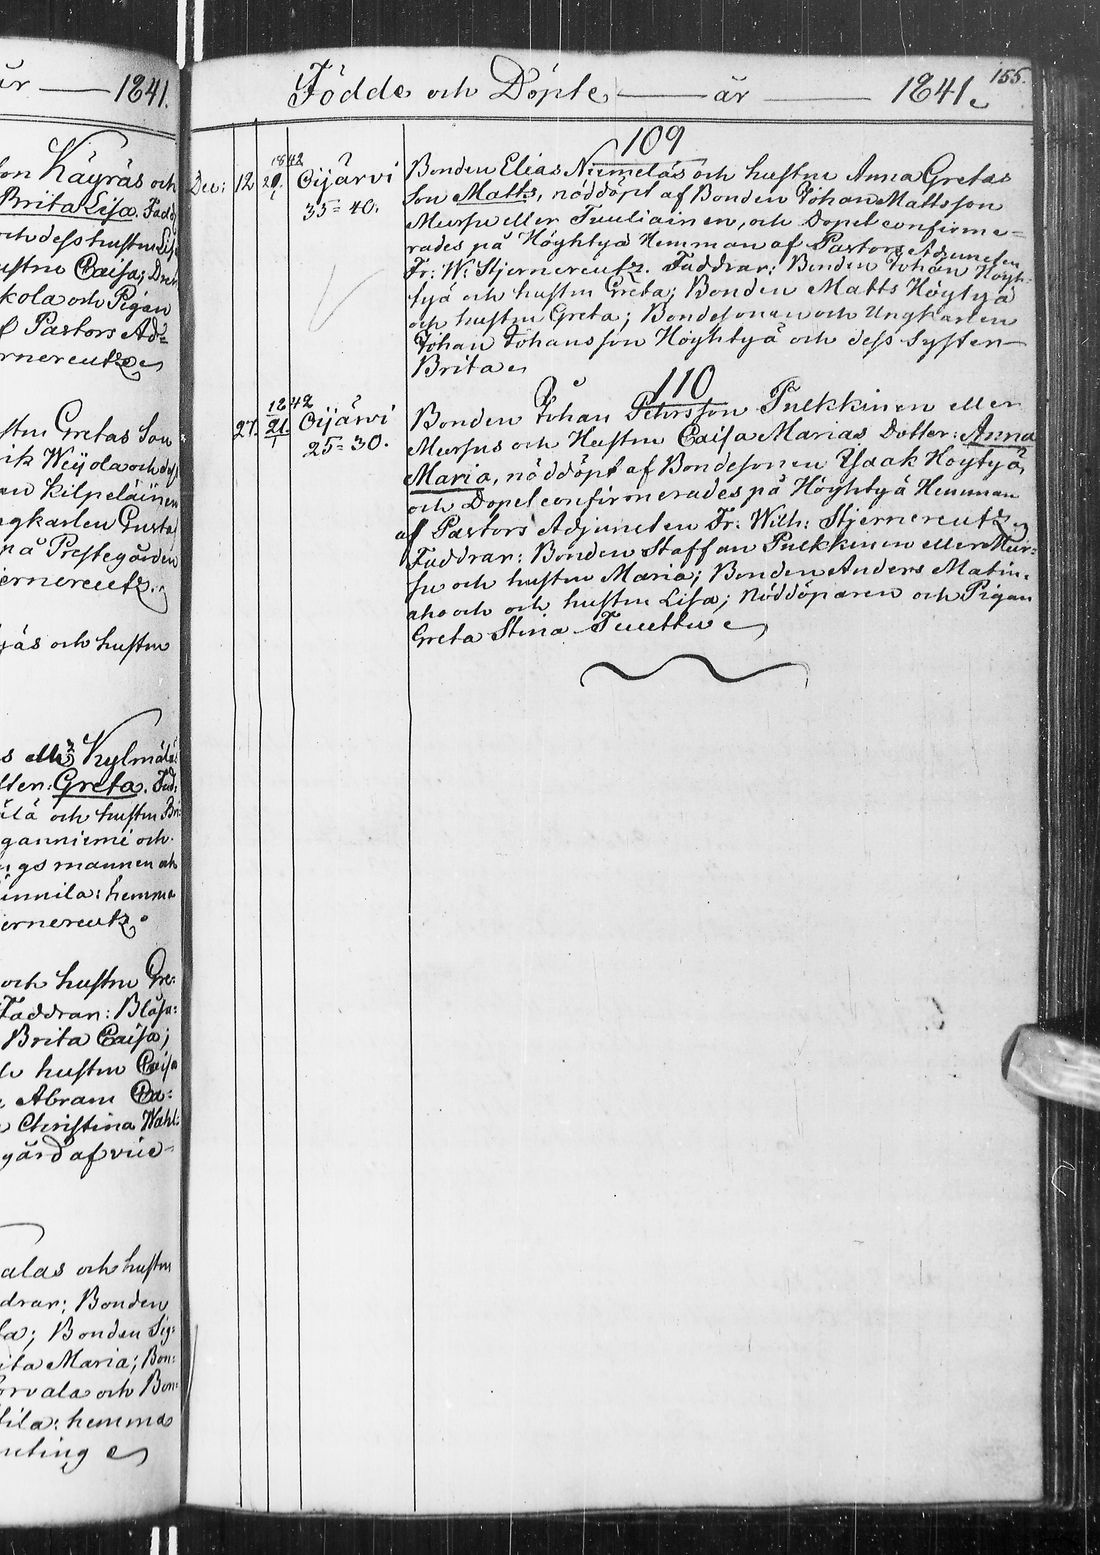 är — 1841.
son Käyräs och
Brita Lisa. Fadd
och dess hustru Lis
hustru Caisa; Dren
kola och Pigan
af Pastors Ad=
ernereutz
hustru Gretas Son
rik Weijola och dess
an Kilpeläinen
ngkarlen Gusta
på Prestegården
jernereutz.
jäs och hustru
s eller Kylmälä
tter: Greta. Fad:
älä och hustru Bri
ganniemi och
ngsmannen och
innilä: hemma
ernereutz.
och hustru Gre:
Faddrar: Blåsa:
Brita Caisa;
hustru Caisa
Abram Ca=
Christina Wahl:
gård af vice
alas och hustru
drar: Bonden
sa; Bonden Sig:
ita Maria; Bon:
orvala och Bon:
tila: hemma
neting
155.
Födde och Döpte — år — 1841.
109
Dec: 12. 1842 29. Oijärvi 35=40. Bonden Elias Niemeläs och hustru Anna Gretas
Son Matts, nöddöpt af Bonden Johan Mattsson
Mursu eller Tuuliainen, och Dopet confirme=
rades på Höyhtyä Hemman af Pastors Adjuncten
Fr: W: Stjernereutz. Faddrar: Bonden Johan Höyh:
tyä och hustru Greta; Bonden Matts Höytyä
och hustru Greta; Bondesonen och Ungkarlen
Johan Johansson Höyhtyä och dess Syster
Brita
110
27. 1842 21. Oijärvi 25=30. Bonden Johan Petersson Pulkkinen eller
Mursus och Hustru Caisa Marias Dotter: Anna
Maria, nöddöpt af Bondesonen Ysaak Höytyä,
och Dopet confirmerades på Höyhtyä Hemman
af Pastors Adjuncten Fr: Wilh: Stjernereutz.
Faddrar: Bonden Staffan Pulkkinen eller Mur=
su och hustru Maria; Bonden Anders Matin=
aho och och hustru Lisa; Nöddöparen och Pigan
Greta Stina